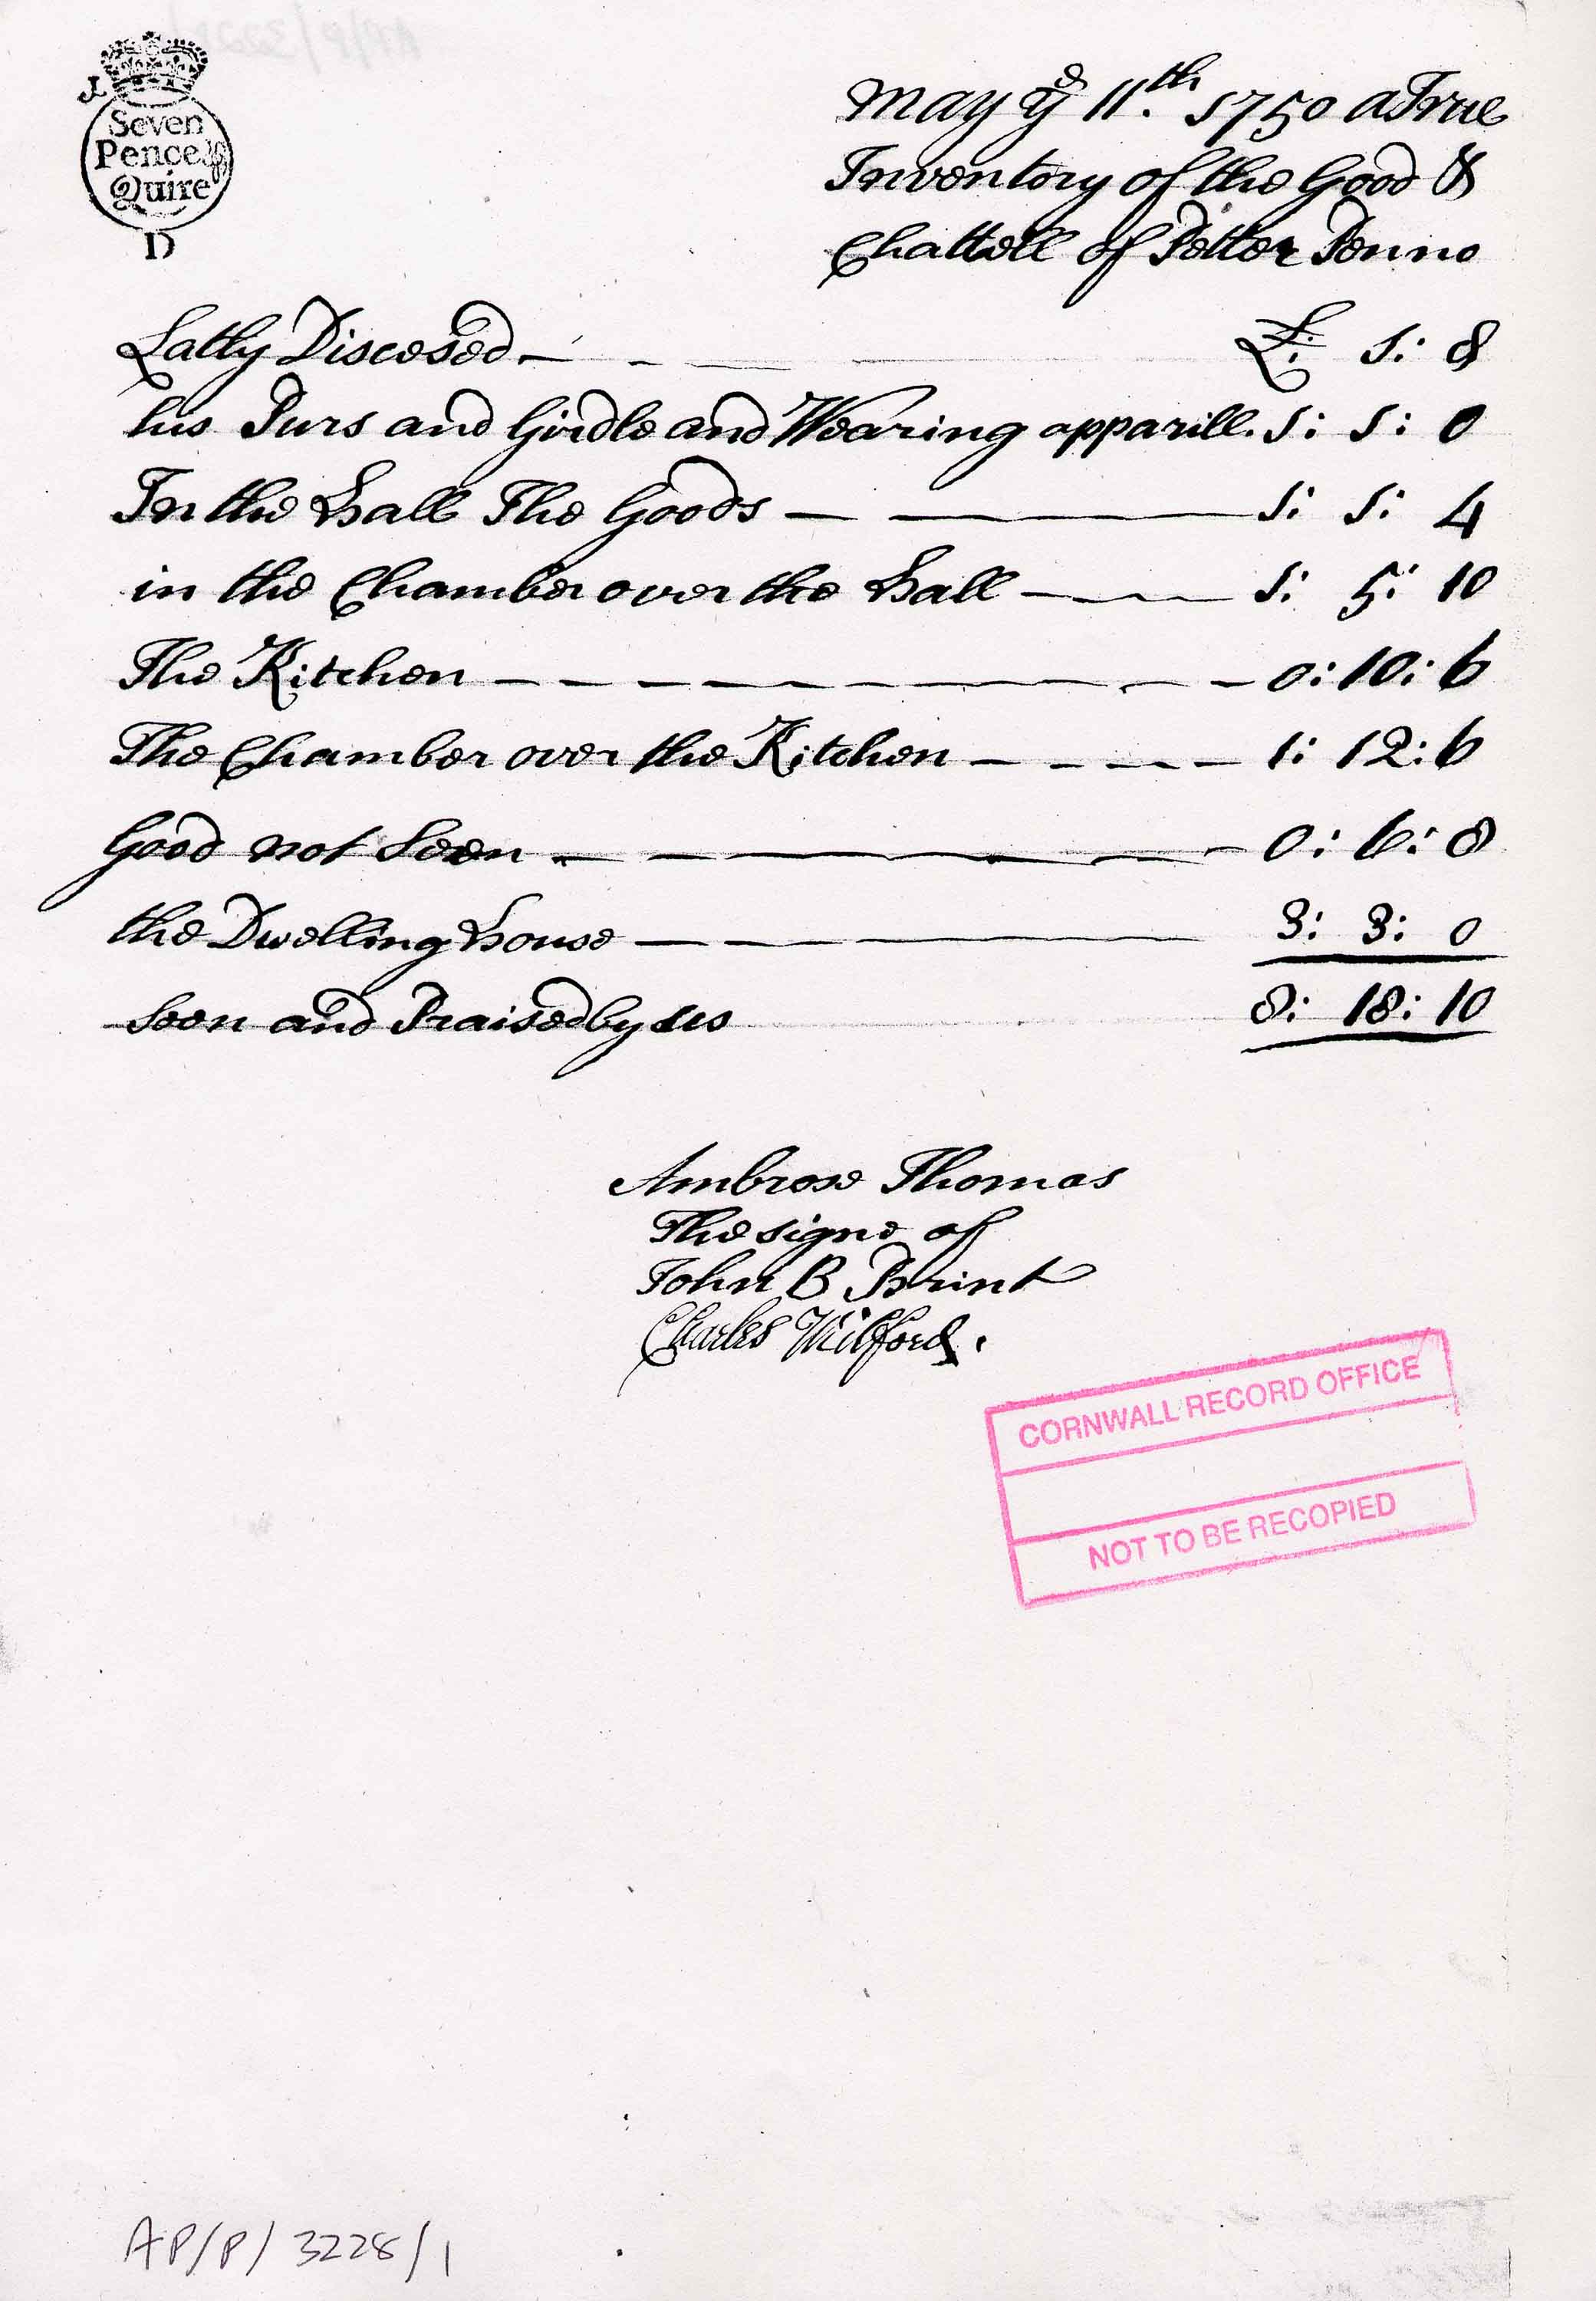 J
Seven
Pence p
Quire
D
May ye 11.th 1750 a True
Inventory of the Good &
Chattell of Petter Penno
Latly Discesed — £: s: d
his Purs and Girdle and Wearing apparill. 1: 1: 0
In the hall The Goods — 1: 1: 4
in the Chamber over the hall — 1: 5: 10
The Kitchen — 0: 10: 6
The Chamber over the Kitchen — 1: 12: 6
Good not Seen — 0: 6: 8
the Dwelling house — 3: 3: 0
Seen and Praised by us 8: 18: 10
Ambrose Thomas
The signe of
John B Brint
Charles Wilford.
CORNWALL RECORD OFFICE
NOT TO BE RECOPIED
AP/P/3228/1